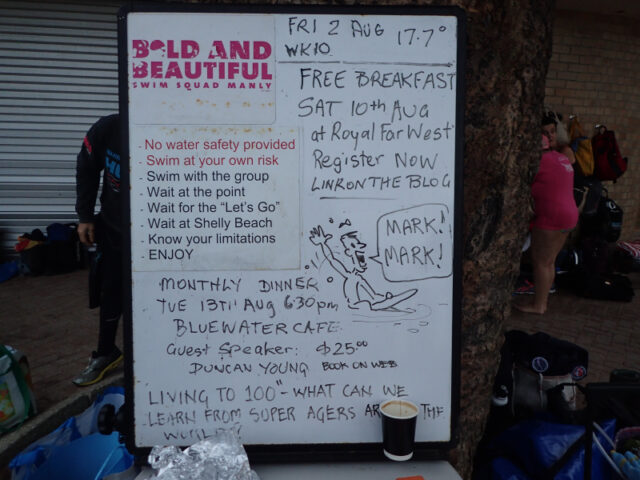 BOLD AND
BEAUTIFUL
SWIM SQUAD MANLY
FRI 2 AUG 17.7°
WK10
FREE BREAKFAST
SAT 10th AUG
at Royal Far West
Register Now
LINK ON THE BLOG
- No water safety provided
- Swim at your own risk
- Swim with the group
- Wait at the point
- Wait for the "Let's Go"
- Wait at Shelly Beach
- Know your limitations
- ENJOY
MARK!
MARK!
MONTHLY DINNER
TUE 13TH Aug 6.30pm
BLUEWATER CAFE
Guest Speaker: $25.00
DUNCAN YOUNG BOOK ON WEB
LIVING TO 100" - WHAT CAN WE
LEARN FROM SUPER AGERS THE
WORLD